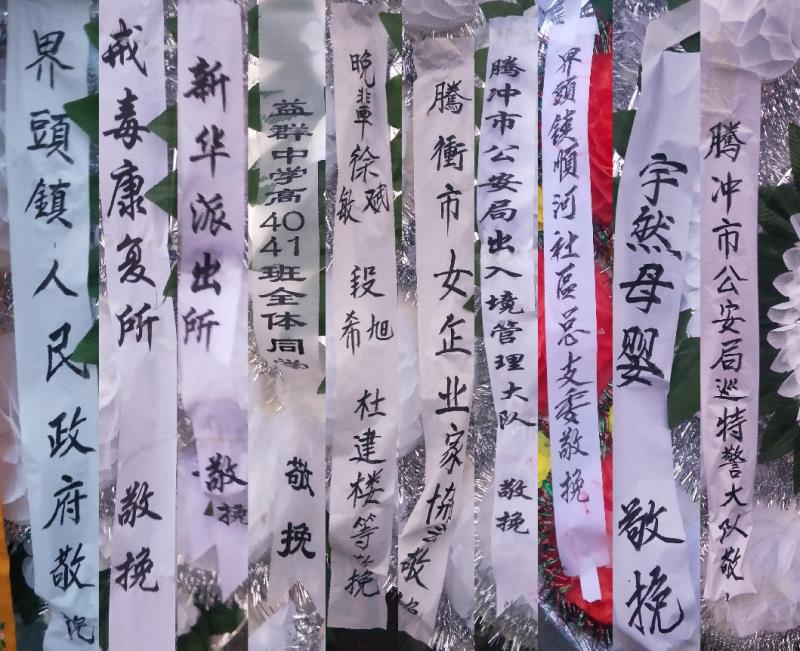 界頭鎮人民政府敬挽
戒毒康复所 敬挽
新华派出所 敬挽
益群中学高40 41班全体同学 敬挽
晚輩徐斌 敏 段旭 希 杜建楼等敬挽
騰衝市女企业家協会敬
腾冲市公安局出入境管理大队 敬挽
界頭鎮順河社區总支委敬挽
宇然母婴 敬挽
腾冲市公安局巡特警大队敬